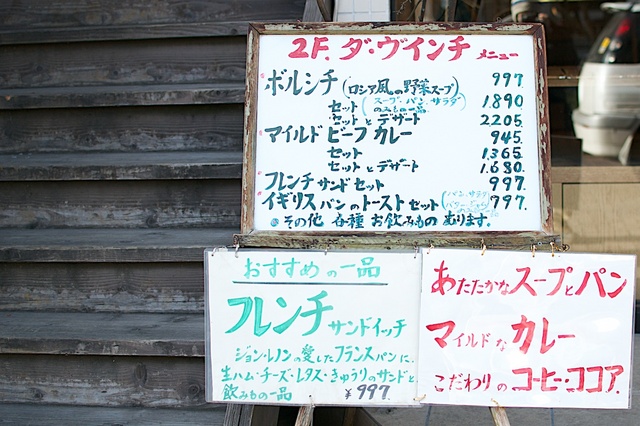 2F. ダ・ヴィンチ メニュー
ボルシチ (ロシア風の野菜スープ) 997
セット (スープ・パン、サラダ のみもの一品) 1.890
セットとデザート 2205
マイルドビーフカレー 945
セット 1.365
セットとデザート 1.680.
フレンチサンドセット 997.
イギリスパンのトーストセット (パン、サラダ 797.
その他 各種 お飲みもの あります。
おすすめの一品
フレンチサンドイッチ
ジョン・レノンの愛したフランスパンに、
生ハム・チーズ・レタス・きゅうりのサンドと
飲みもの一品 ¥997
あたたかなスープとパン
マイルドなカレー
こだわりのコーヒー・ココア.